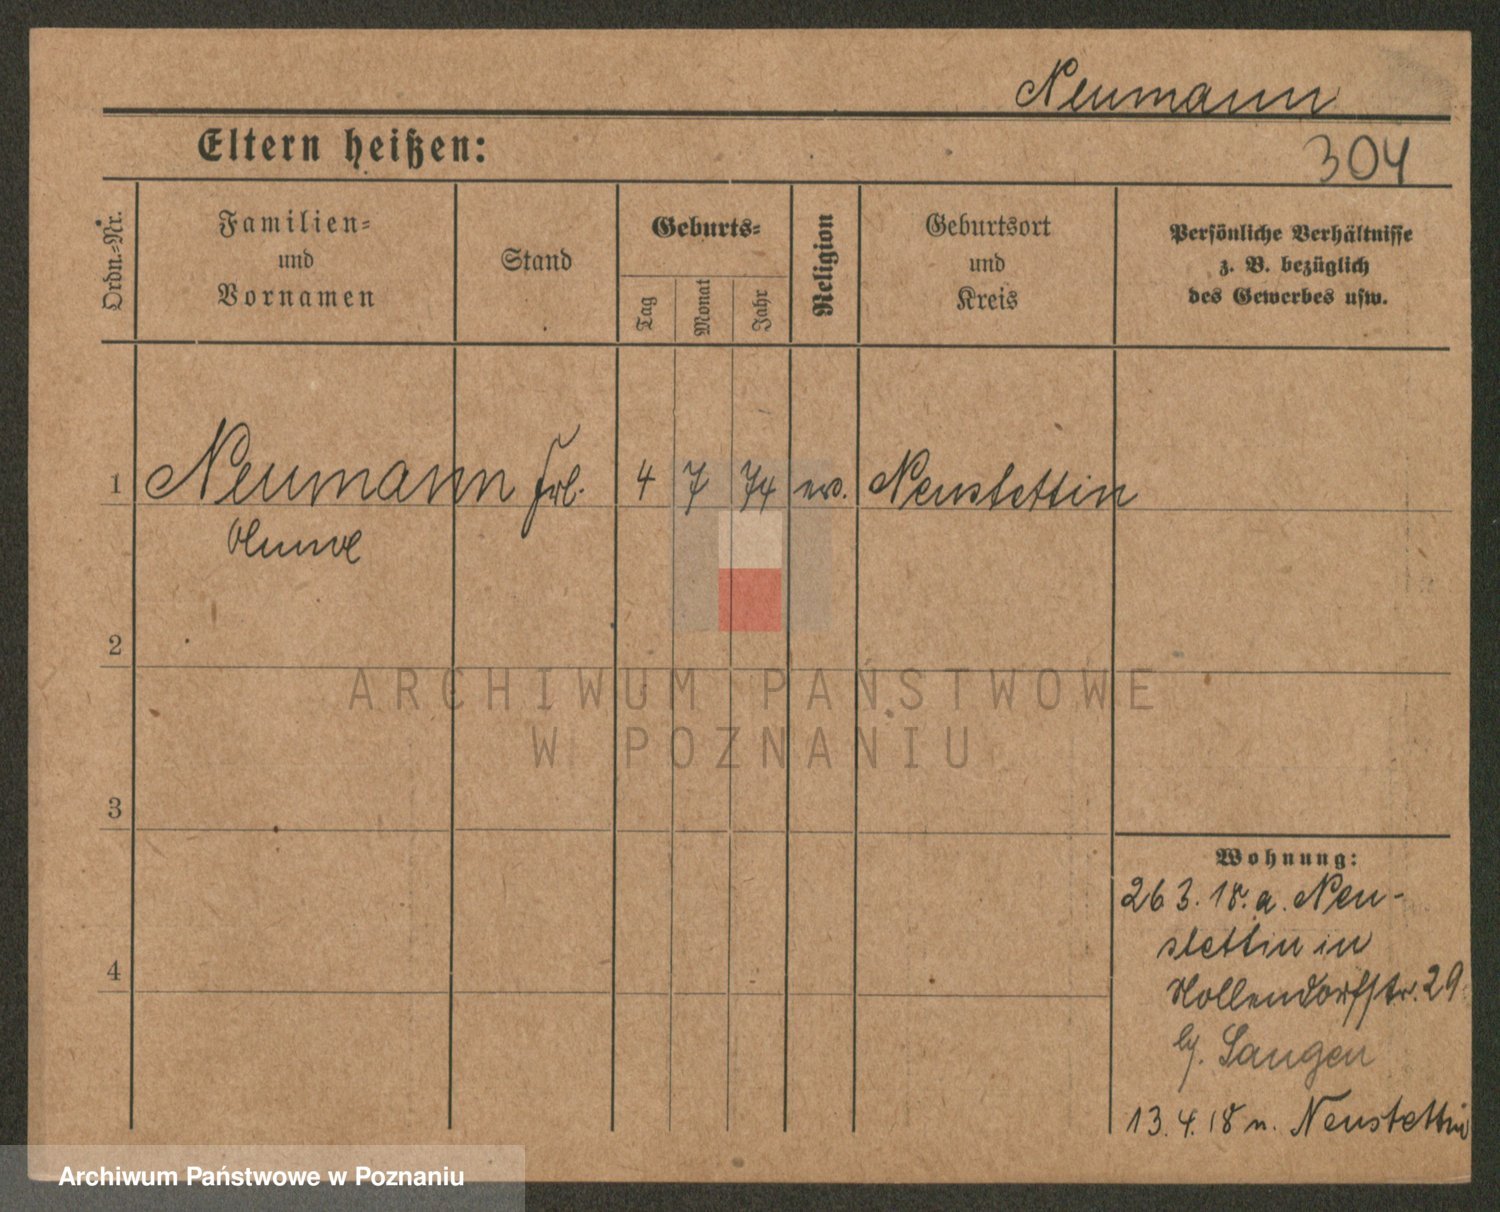 Neumann
Eltern heißen:
304
Ordn.-Nr.
Familien- und Vornamen
Stand
Geburts-
Tag
Monat
Jahr
Religion
Geburtsort und Kreis
Persönliche Verhältnisse
z. B. bezüglich
des Gewerbes usw.
1 Neumann Frl. 4 7 74 ev. Neustettin
2
3
4
ARCHIWUM PAŃSTWOWE
W POZNANIU
Wohnung:
26 3. 18. a. Neu-
stettin in
Hollendorfstr. 29
bj. Langen
13. 4. 18 n. Neustettin
Archiwum Państwowe w Poznaniu